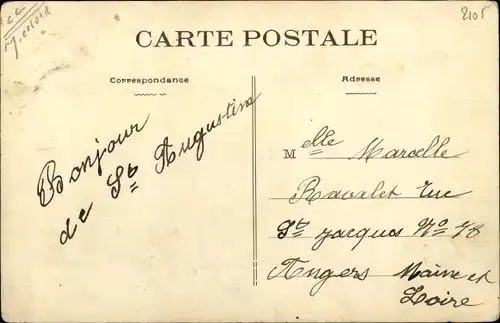 2105
CARTE POSTALE
Correspondance
Adresse
Bonjour
de St Augustin
Melle Marcelle
Ravalet rue
St Jacques No 78
Angers Maine et
Loire